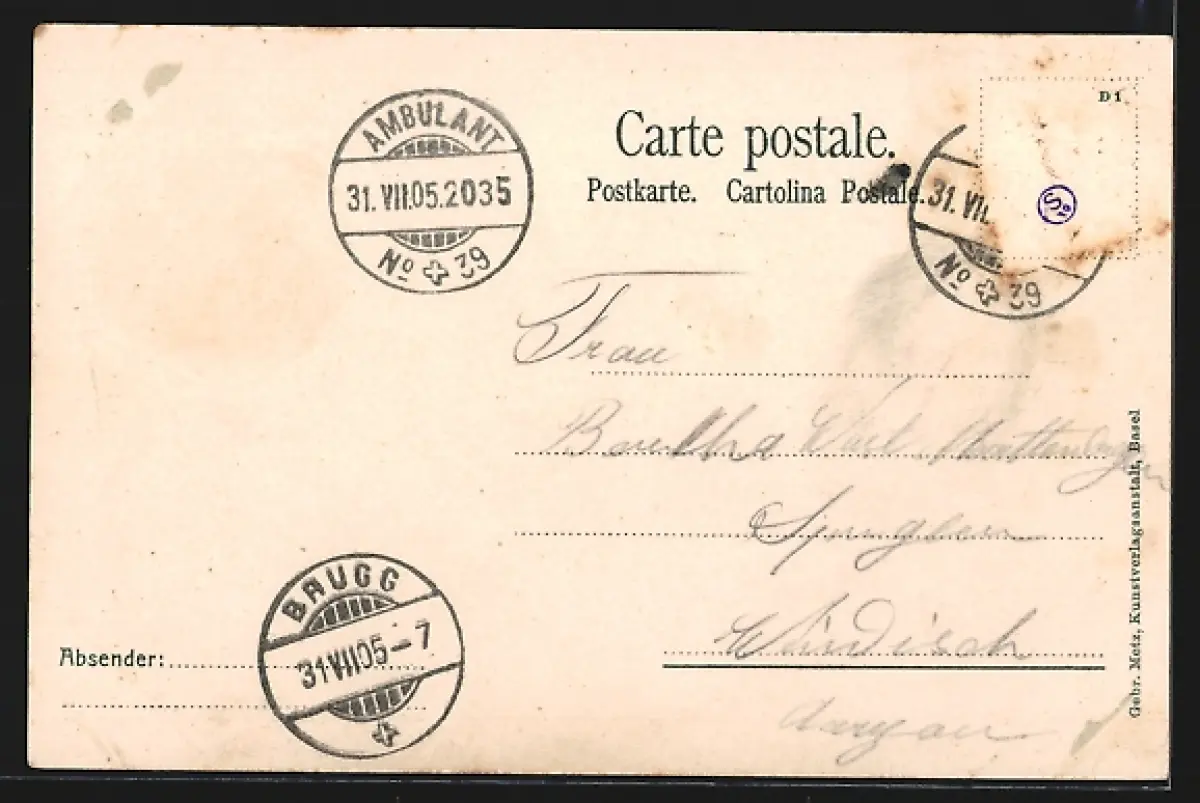 D 1
Carte postale.
Postkarte. Cartolina Postale.
AMBULANT
31. VII.05.2035
No 39
31. VII.
No 39
Frau
Spenglers
Windisch
Aargau
BRUGG
31 VII 05 – 7
Absender:
Gebr. Metz, Kunstverlagsanstalt, Basel